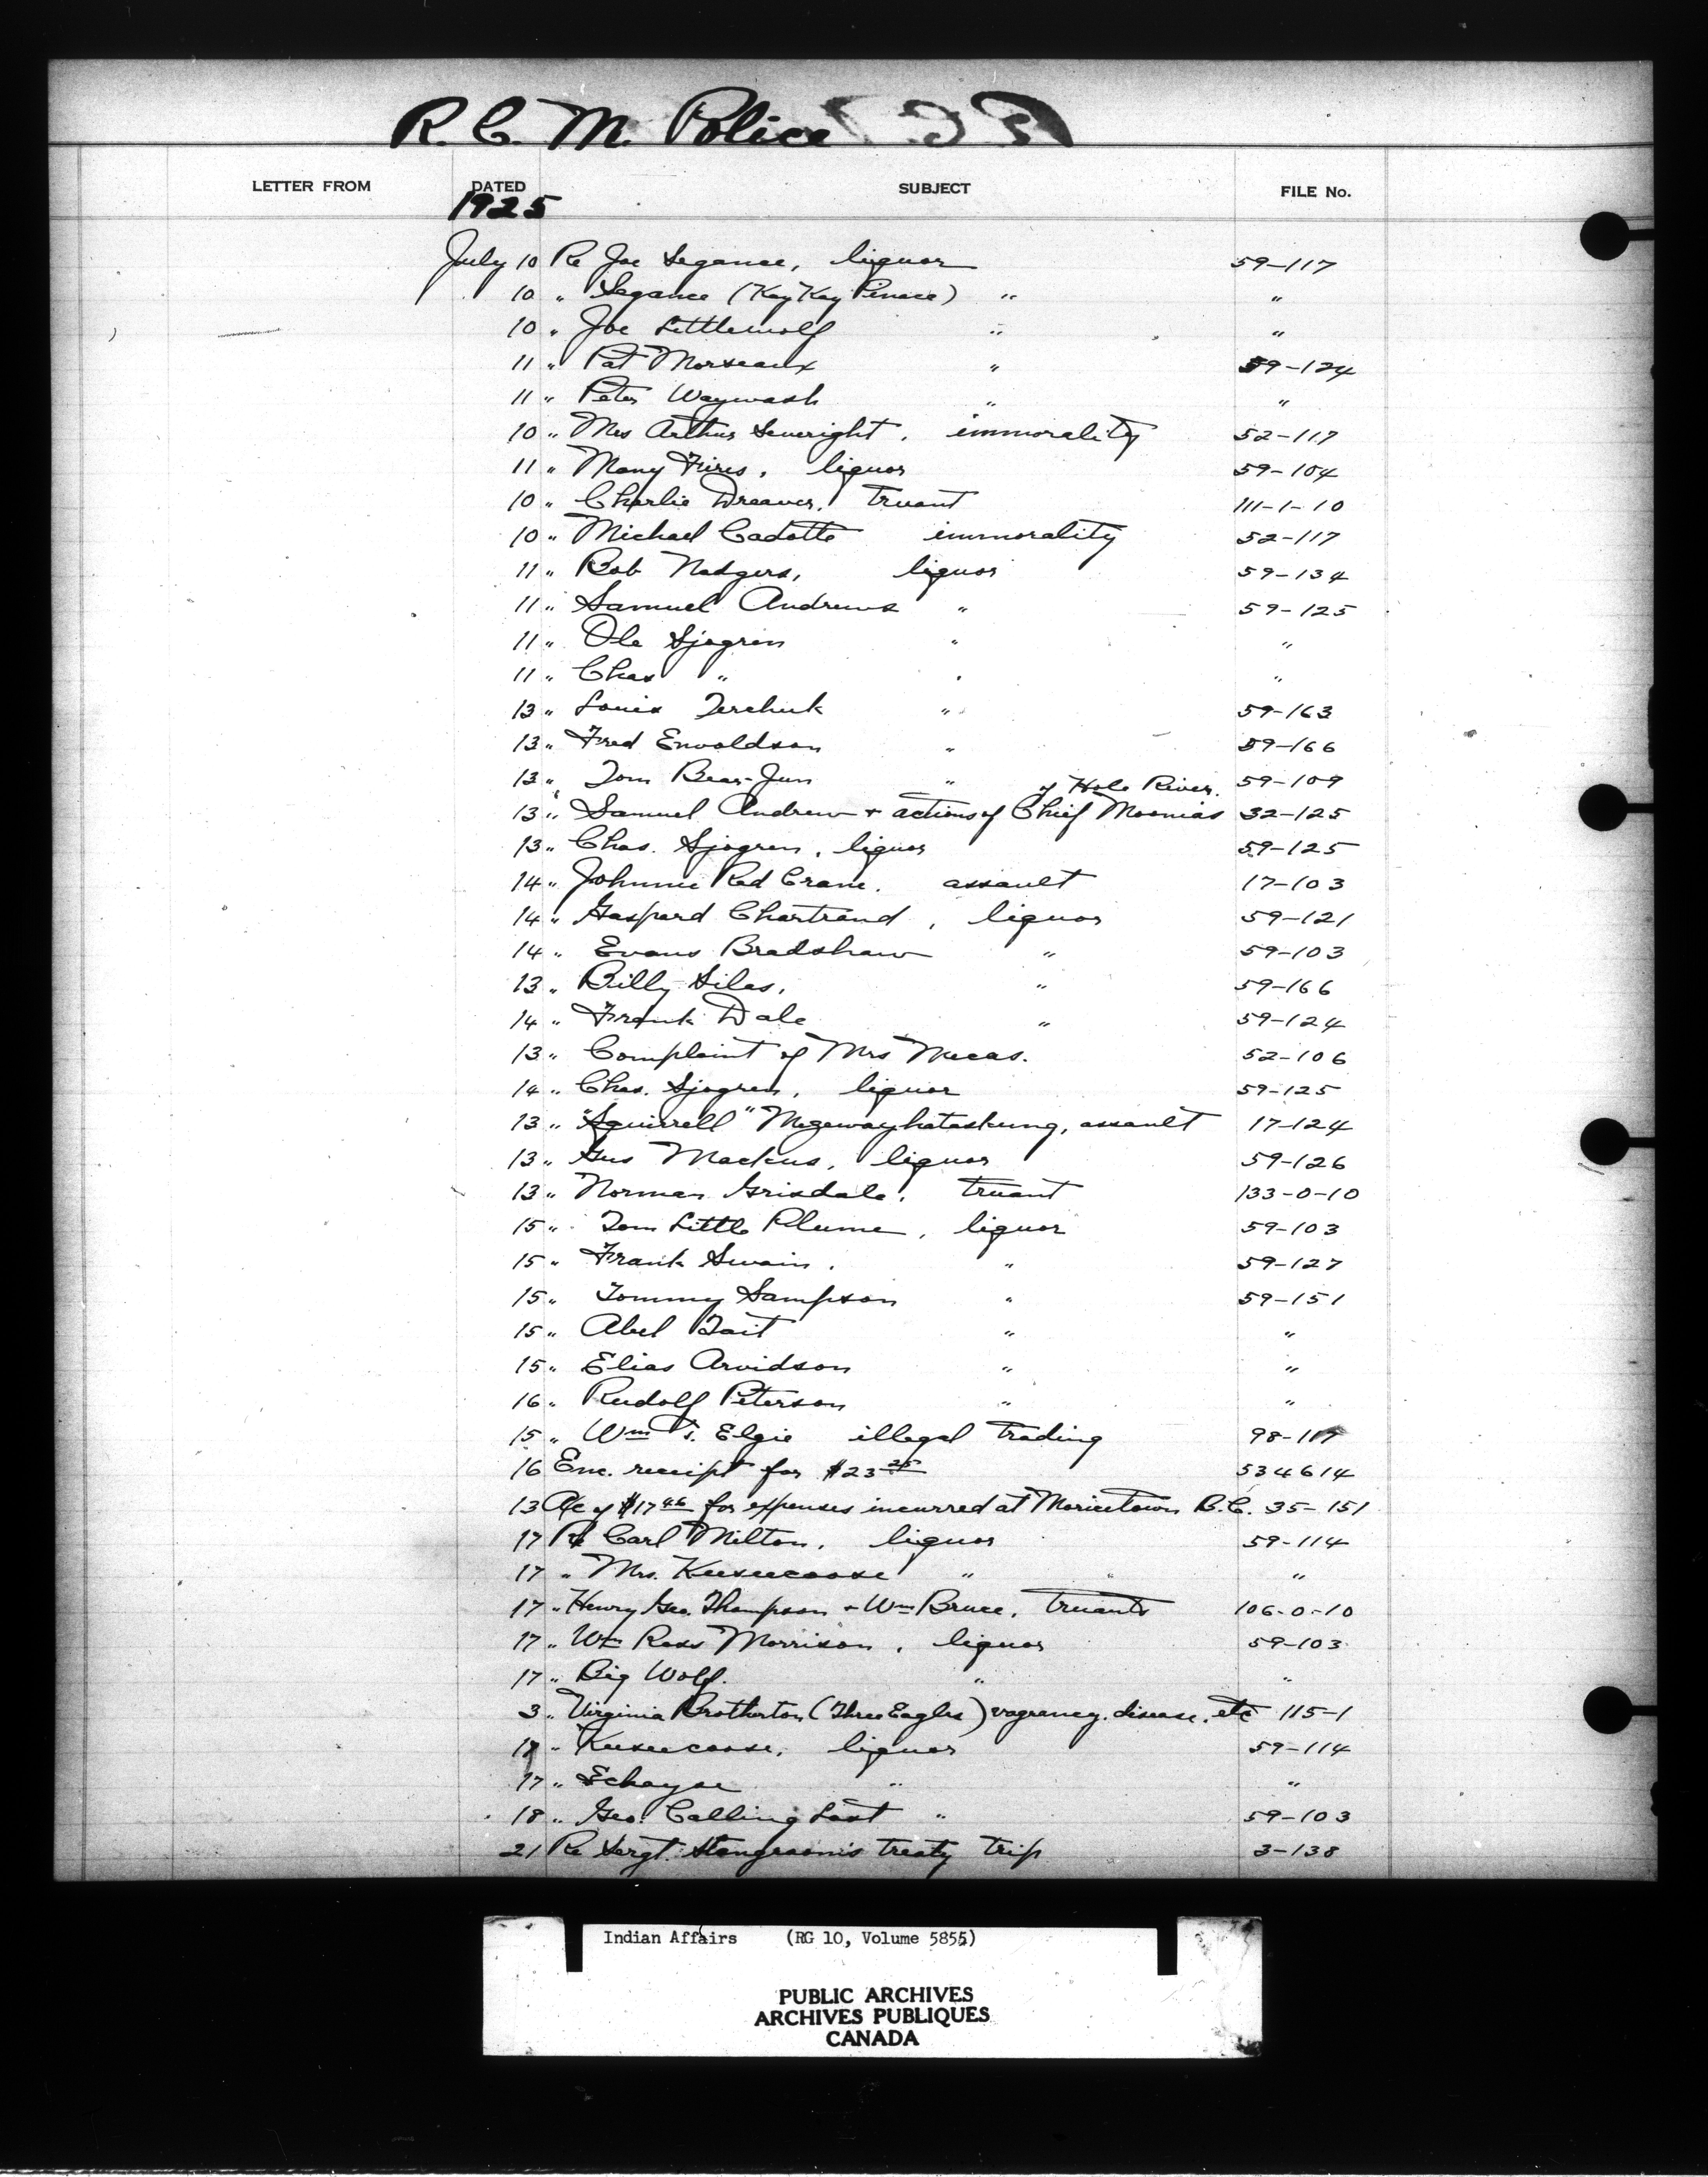 R. C. M. Police
LETTER FROM DATED SUBJECT FILE No.
1925
July 10 Re Joe Segance, liquor 59-117
10 " Segance (Kay Kay Penace) " "
10 " Joe Littlewolf " "
11 " Pat Morseaux " 59-124
11 " Peter Waywash " "
10 " Mrs Arthur Seweright, immorality 52-117
11 " Many Fires, liquor 59-104
10 " Charlie Dreaver, truant 111-1-10
10 " Michael Cadotte immorality 52-117
11 " Bob Nadgers, liquor 59-134
11 " Samuel Andrews " 59-125
11 " Ole Sjogren " "
11 " Chas " " "
13 " Louis Terchuk " 59-163
13 " Fred Envoldson " 59-166
13 " Tom Bear Jun " 59-109
of Hole River.
13 " Samuel Andrew + actions of Chief Moonias 32-125
13 " Chas. Sjogren, liquor 59-125
14 " Johnnie Red Crane, assault 17-103
14 " Gaspard Chartrand, liquor 59-121
14 " Evans Bradshaw " 59-103
13 " Billy Silas, " 59-166
14 " Frank Dale " 59-124
13 " Complaint of Mrs Mecas. 52-106
14 " Chas. Sjogren, liquor 59-125
13 " "Squirrell" Megewayhataskung, assault 17-124
13 " Gus Mackus, liquor 59-126
13 " Norman Grisdale, truant 133-0-10
15 " Tom Little Plume, liquor 59-103
15 " Frank Swain, " 59-127
15 " Tommy Sampson " 59-151
15 " Abel Tait " "
15 " Elias Arvidson " "
16 " Rudolf Peterson " "
15 " Wm T. Elgie illegal trading 98-117
16 Enc. receipt for $23.25 534614
13 A/c of $17.46 for expenses incurred at Moricetown B.C. 35-151
17 Re Carl Milton, liquor 59-114
17 " Mrs. Keeseecoose " "
17 " Henry Geo. Thompson + Wm Bruce, truants 106-0-10
17 " Wm Ross Morrison, liquor 59-103
17 " Big Wolf. " "
3 " Virginia Brotherton (Three Eagles) vagrancy, disease, etc 115-1
17 " Keeseecoose, liquor 59-114
17 " Echayse " "
18 " Geo. Calling Last " 59-103
21 Re Sergt. treaty trip 3-138
Indian Affairs (RG 10, Volume 5855)
PUBLIC ARCHIVES
ARCHIVES PUBLIQUES
CANADA